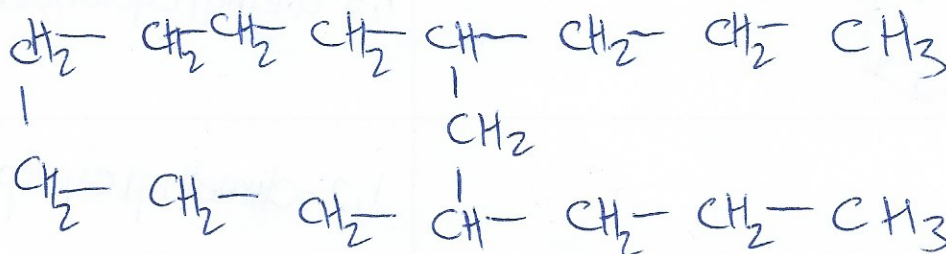 CH2— CH2— CH2— CH2— CH— CH2— CH2— CH3
|
|
CH2
|
CH2— CH2— CH2— CH— CH2— CH2— CH3